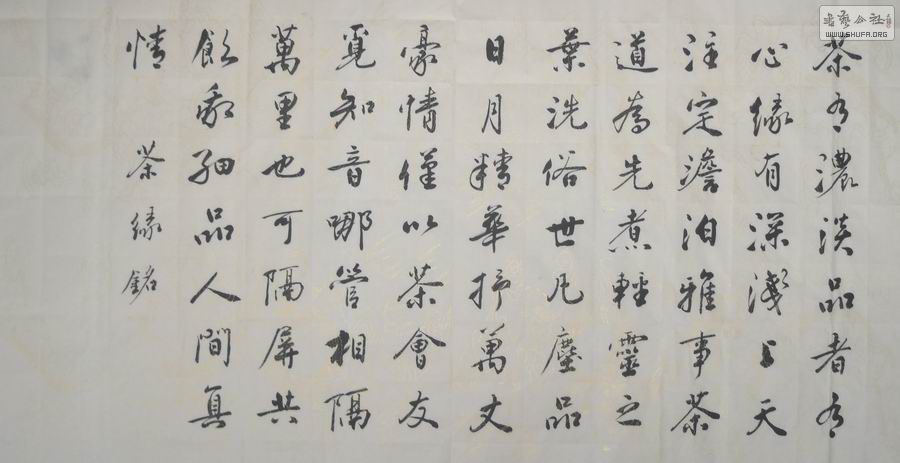 茶有濃淡品者有
心緣有深淺上天
注定澹泊雅事茶
道為先煮輕靈之
葉洗俗世凡塵品
日月精華抒萬丈
豪情僅以茶會友
覓知音哪管相隔
萬里也可隔屏共
飲細品人間真
情 茶緣銘
書藝公社
WWW.SHUFA.ORG